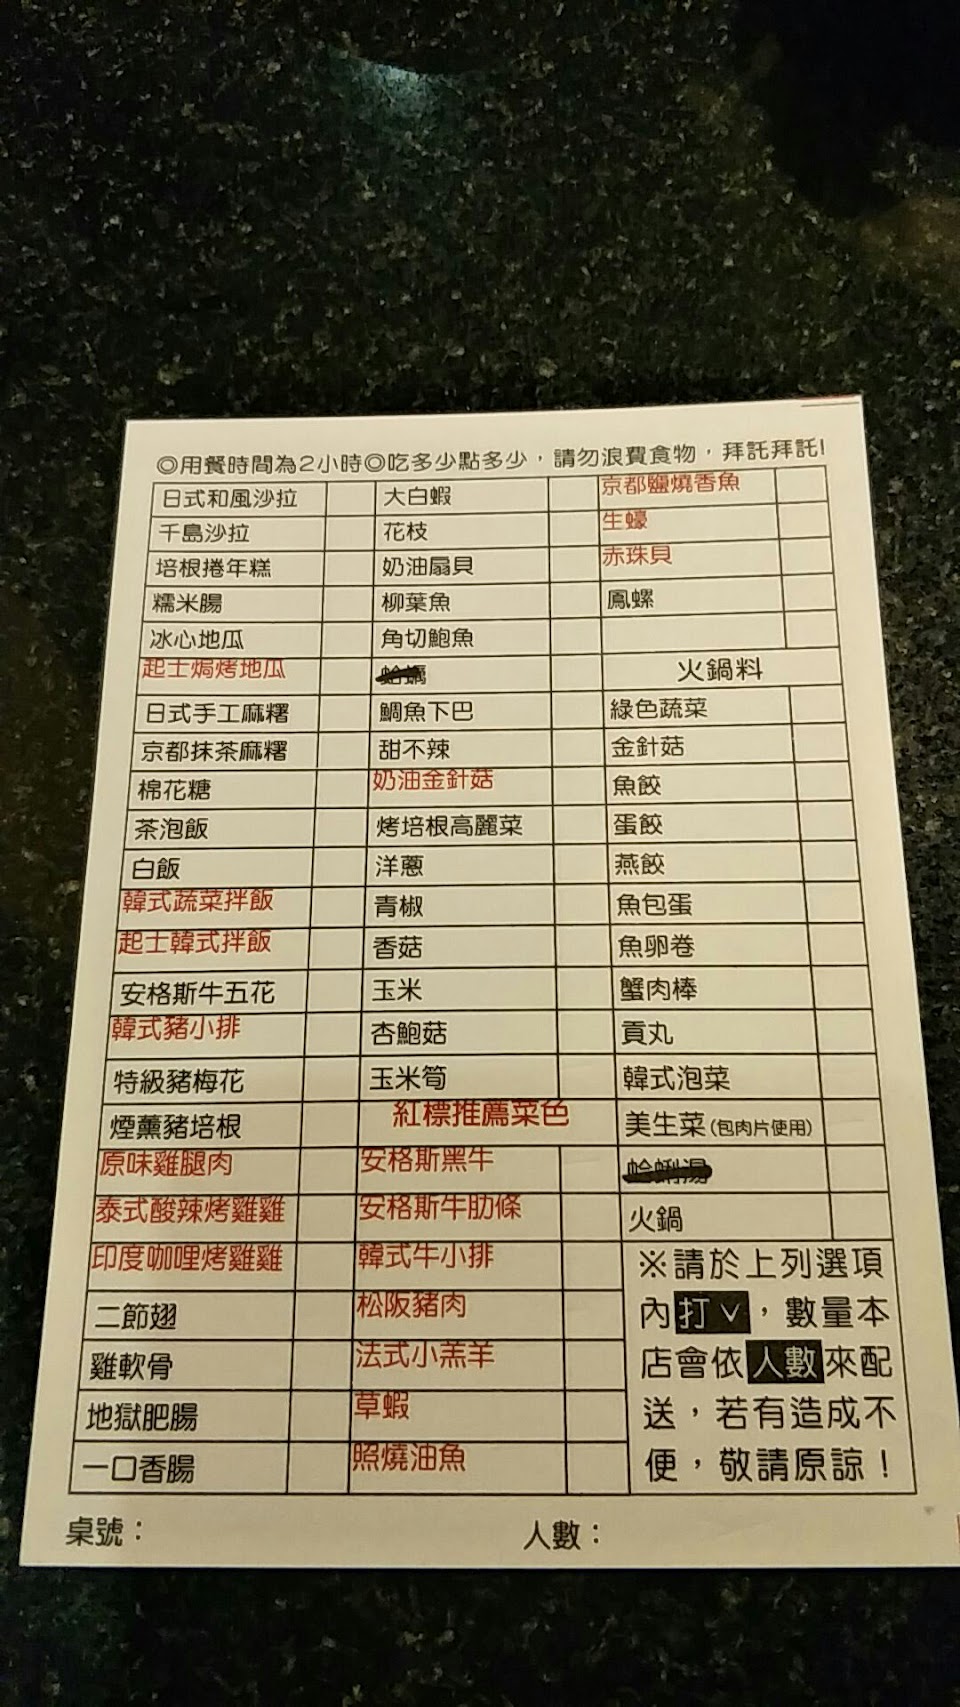 ◎用餐時間為2小時◎吃多少點多少，請勿浪費食物，拜託拜託!
日式和風沙拉
千島沙拉
培根捲年糕
糯米腸
冰心地瓜
起士焗烤地瓜
日式手工麻糬
京都抹茶麻糬
棉花糖
茶泡飯
白飯
韓式蔬菜拌飯
起士韓式拌飯
安格斯牛五花
韓式豬小排
特級豬梅花
煙薰豬培根
原味雞腿肉
泰式酸辣烤雞雞
印度咖哩烤雞雞
二節翅
雞軟骨
地獄肥腸
一口香腸
大白蝦
花枝
奶油扇貝
柳葉魚
角切鮑魚
鯛魚下巴
甜不辣
奶油金針菇
烤培根高麗菜
洋蔥
青椒
香菇
玉米
杏鮑菇
玉米筍
紅標推薦菜色
安格斯黑牛
安格斯牛肋條
韓式牛小排
松阪豬肉
法式小羔羊
草蝦
照燒油魚
京都鹽燒香魚
生蠔
赤珠貝
鳳螺
火鍋料
綠色蔬菜
金針菇
魚餃
蛋餃
燕餃
魚包蛋
魚卵卷
蟹肉棒
貢丸
韓式泡菜
美生菜(包肉片使用)
蛤蜊湯
火鍋
※請於上列選項
內打ˇ，數量本
店會依人數來配
送，若有造成不
便，敬請原諒！
桌號：
人數：